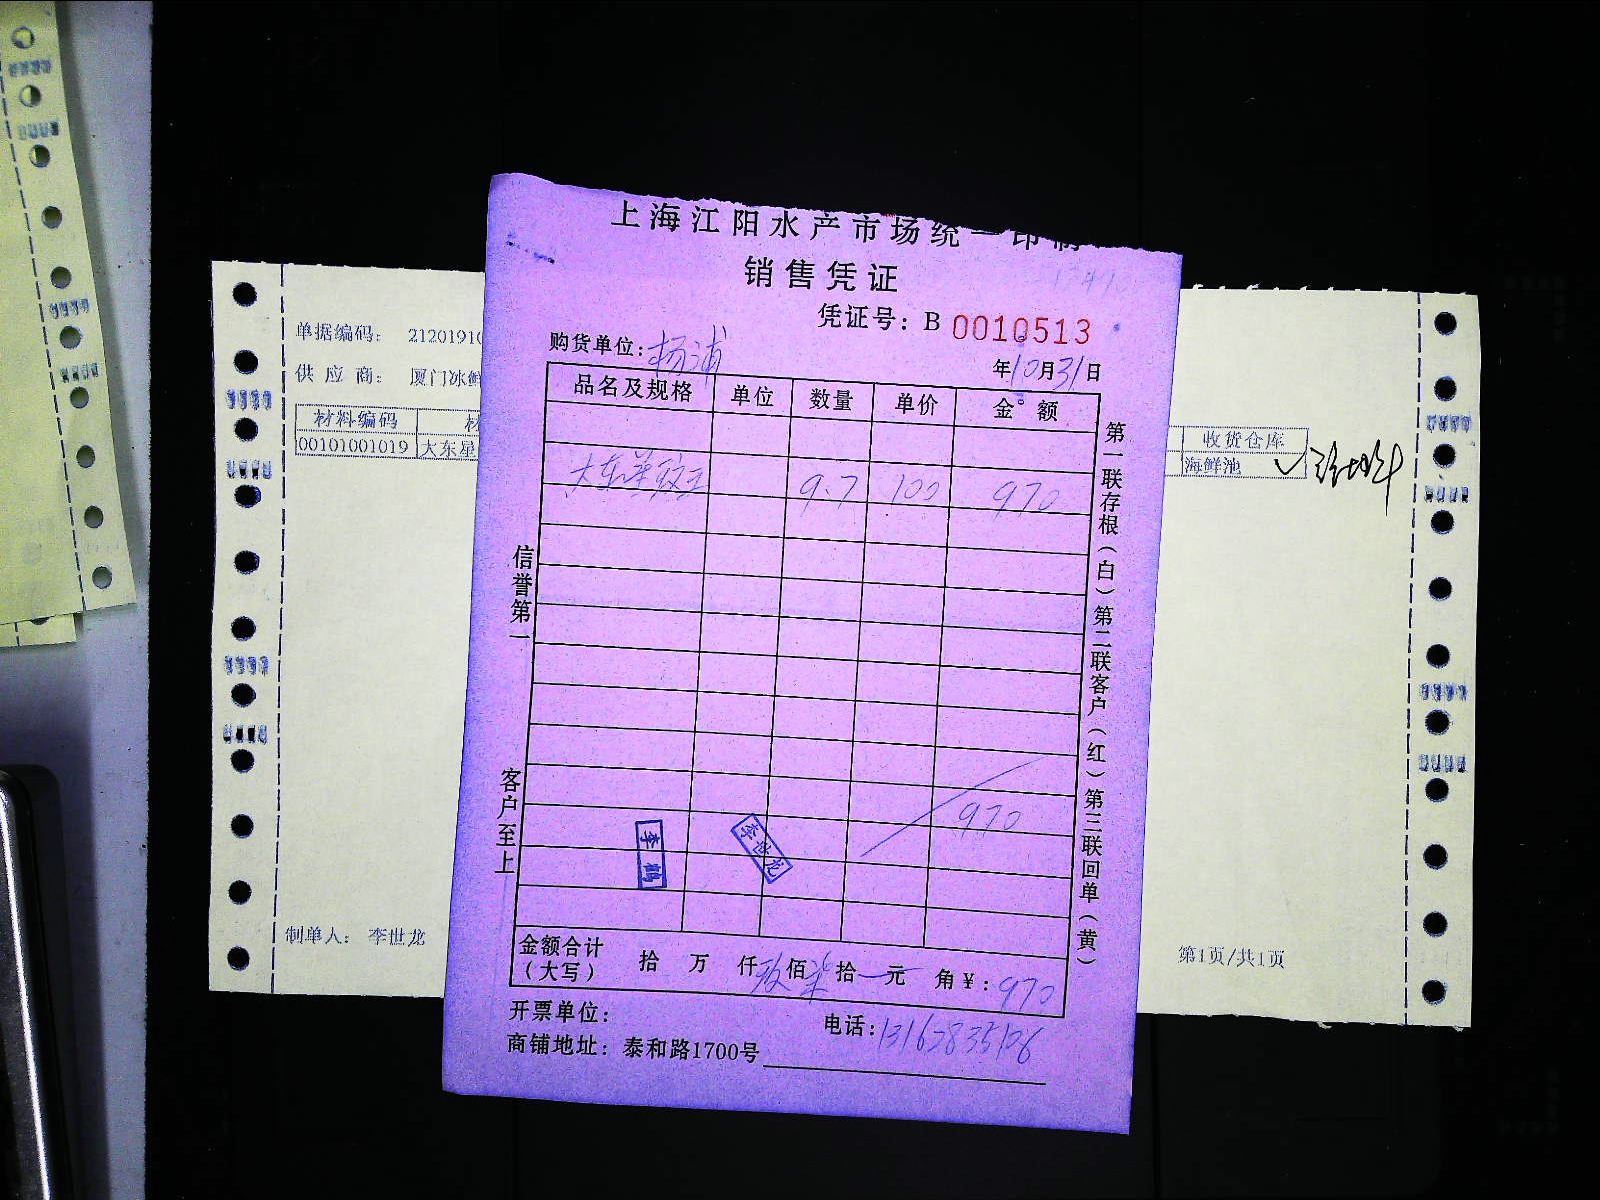 上海江阳水产市场统一印制
销售凭证
凭证号：B 0010513
购货单位：杨浦
年10月31日
品名及规格 单位 数量 单价 金额
大东星斑 9.7 100 970
970
李鹏
李世龙
金额合计（大写） 拾 万 仟玖佰柒拾一元 角￥：970
开票单位：
电话：13162835106
商铺地址：泰和路1700号
信誉第一
客户至上
第一联存根（白）第二联客户（红）第三联回单（黄）
单据编码： 2120191
供应商： 厦门冰鲜
材料编码
00101001019 大东星
收货仓库
海鲜池
制单人： 李世龙
第1页/共1页